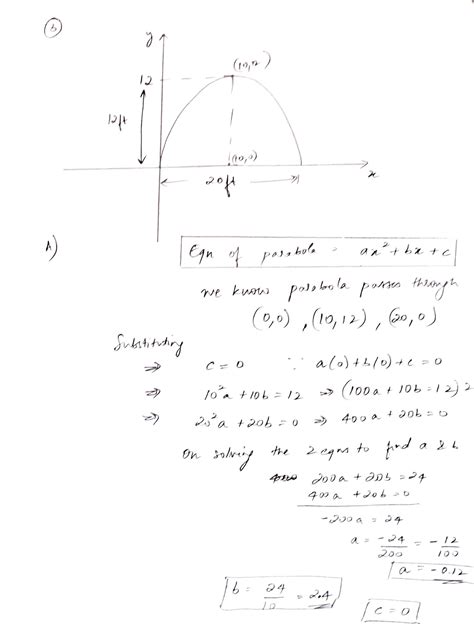 (b)
y
(10,12)
12
12ft
(10,0)
x
20ft
A)
Eqn of parabola = ax² + bx + c
we know parabola passes through
(0,0), (10,12), (20,0)
Substituting
⇒ c = 0 ∵ a(0)+b(0)+c=0
⇒ 10²a+10b=12 ⇒ (100a+10b=12)2
⇒ 20²a+20b=0 ⇒ 400a+20b=0
On solving the 2 eqns to find a & b
200a + 20b = 24
400a + 20b = 0
-200a = 24
a = -24/200 = -12/100
a = -0.12
b = 24/10 = 2.4
c = 0